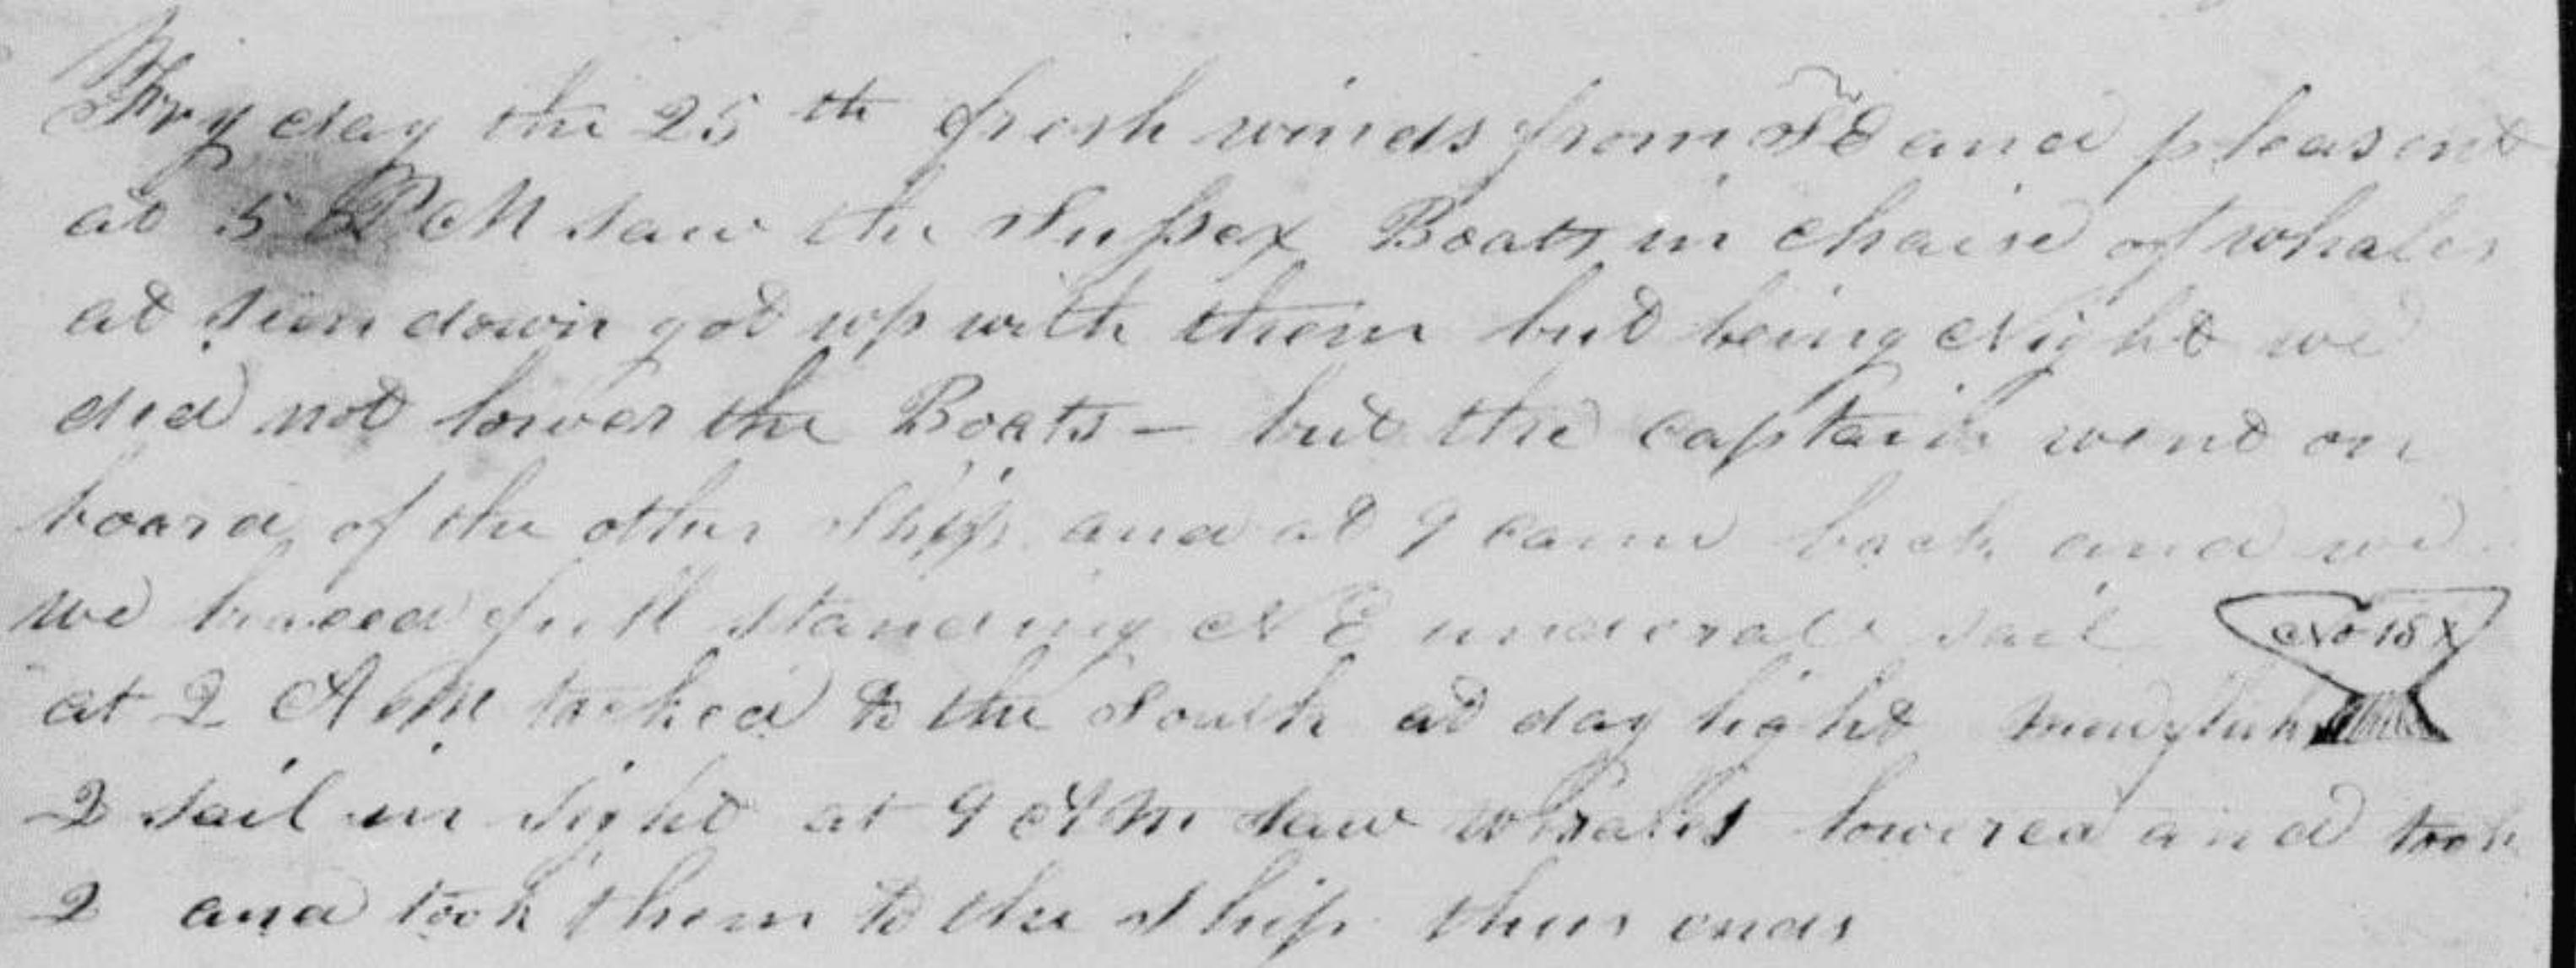 Fryday the 25th fresh winds from SE and pleasent
at 5 PM saw the Sussex Boats in chaise of whales
at sun down got up with them but being Night we
did not lower the Boats - but the captain went on
board of the other Ship and at 9 came back and we
we braced full standing NE under sail
No 18
at 2 AM tacked to the South at day light
2 sail in sight at 9 AM saw whales lowered and took
2 and took them to the Ship thus ends